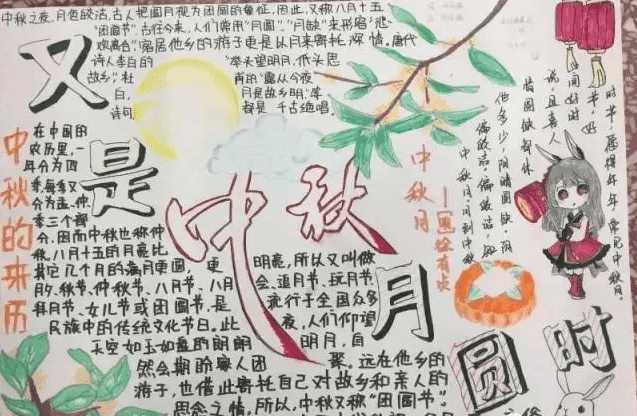 中秋之夜,月色皎洁,古人把圆月视为团圆的象征,因此,又称八月十五
"团圆节",古往今来,人们常用"月圆"、"月缺"来形容"悲
欢离合",客居他乡的游子更是以月来寄托深情。唐代
诗人李白的"举头望明月,低头思
故乡",杜甫的"露从今夜
白,月是故乡明"等
诗句都是千古绝唱。
又
是
中秋
月
圆
时
中秋的来历
在中国的
农历里,一
年分为四
季,每季又
分为孟、仲、
季三个部
分,因而中秋也称仲
秋。八月十五的月亮比
其它几个月的满月更圆,更明亮,所以又叫做
月夕、秋节、仲秋节、八月节、八月会、追月节、玩月节、
拜月节、女儿节或团圆节,是流行于全国众多
民族中的传统文化节日。此夜,人们仰望
天空如玉如盘的朗朗明月,自
然会期盼家人团聚。远在他乡的
游子,也借此寄托自己对故乡和亲人的
思念之情。所以,中秋又称"团圆节"。
中秋月
中秋月,月到中秋
偏皎洁。偏皎洁,知
他多少,阴晴圆缺。阴
晴圆缺都休
说,且喜人
间好时
节。好
时节,愿得年年,常见中秋月。